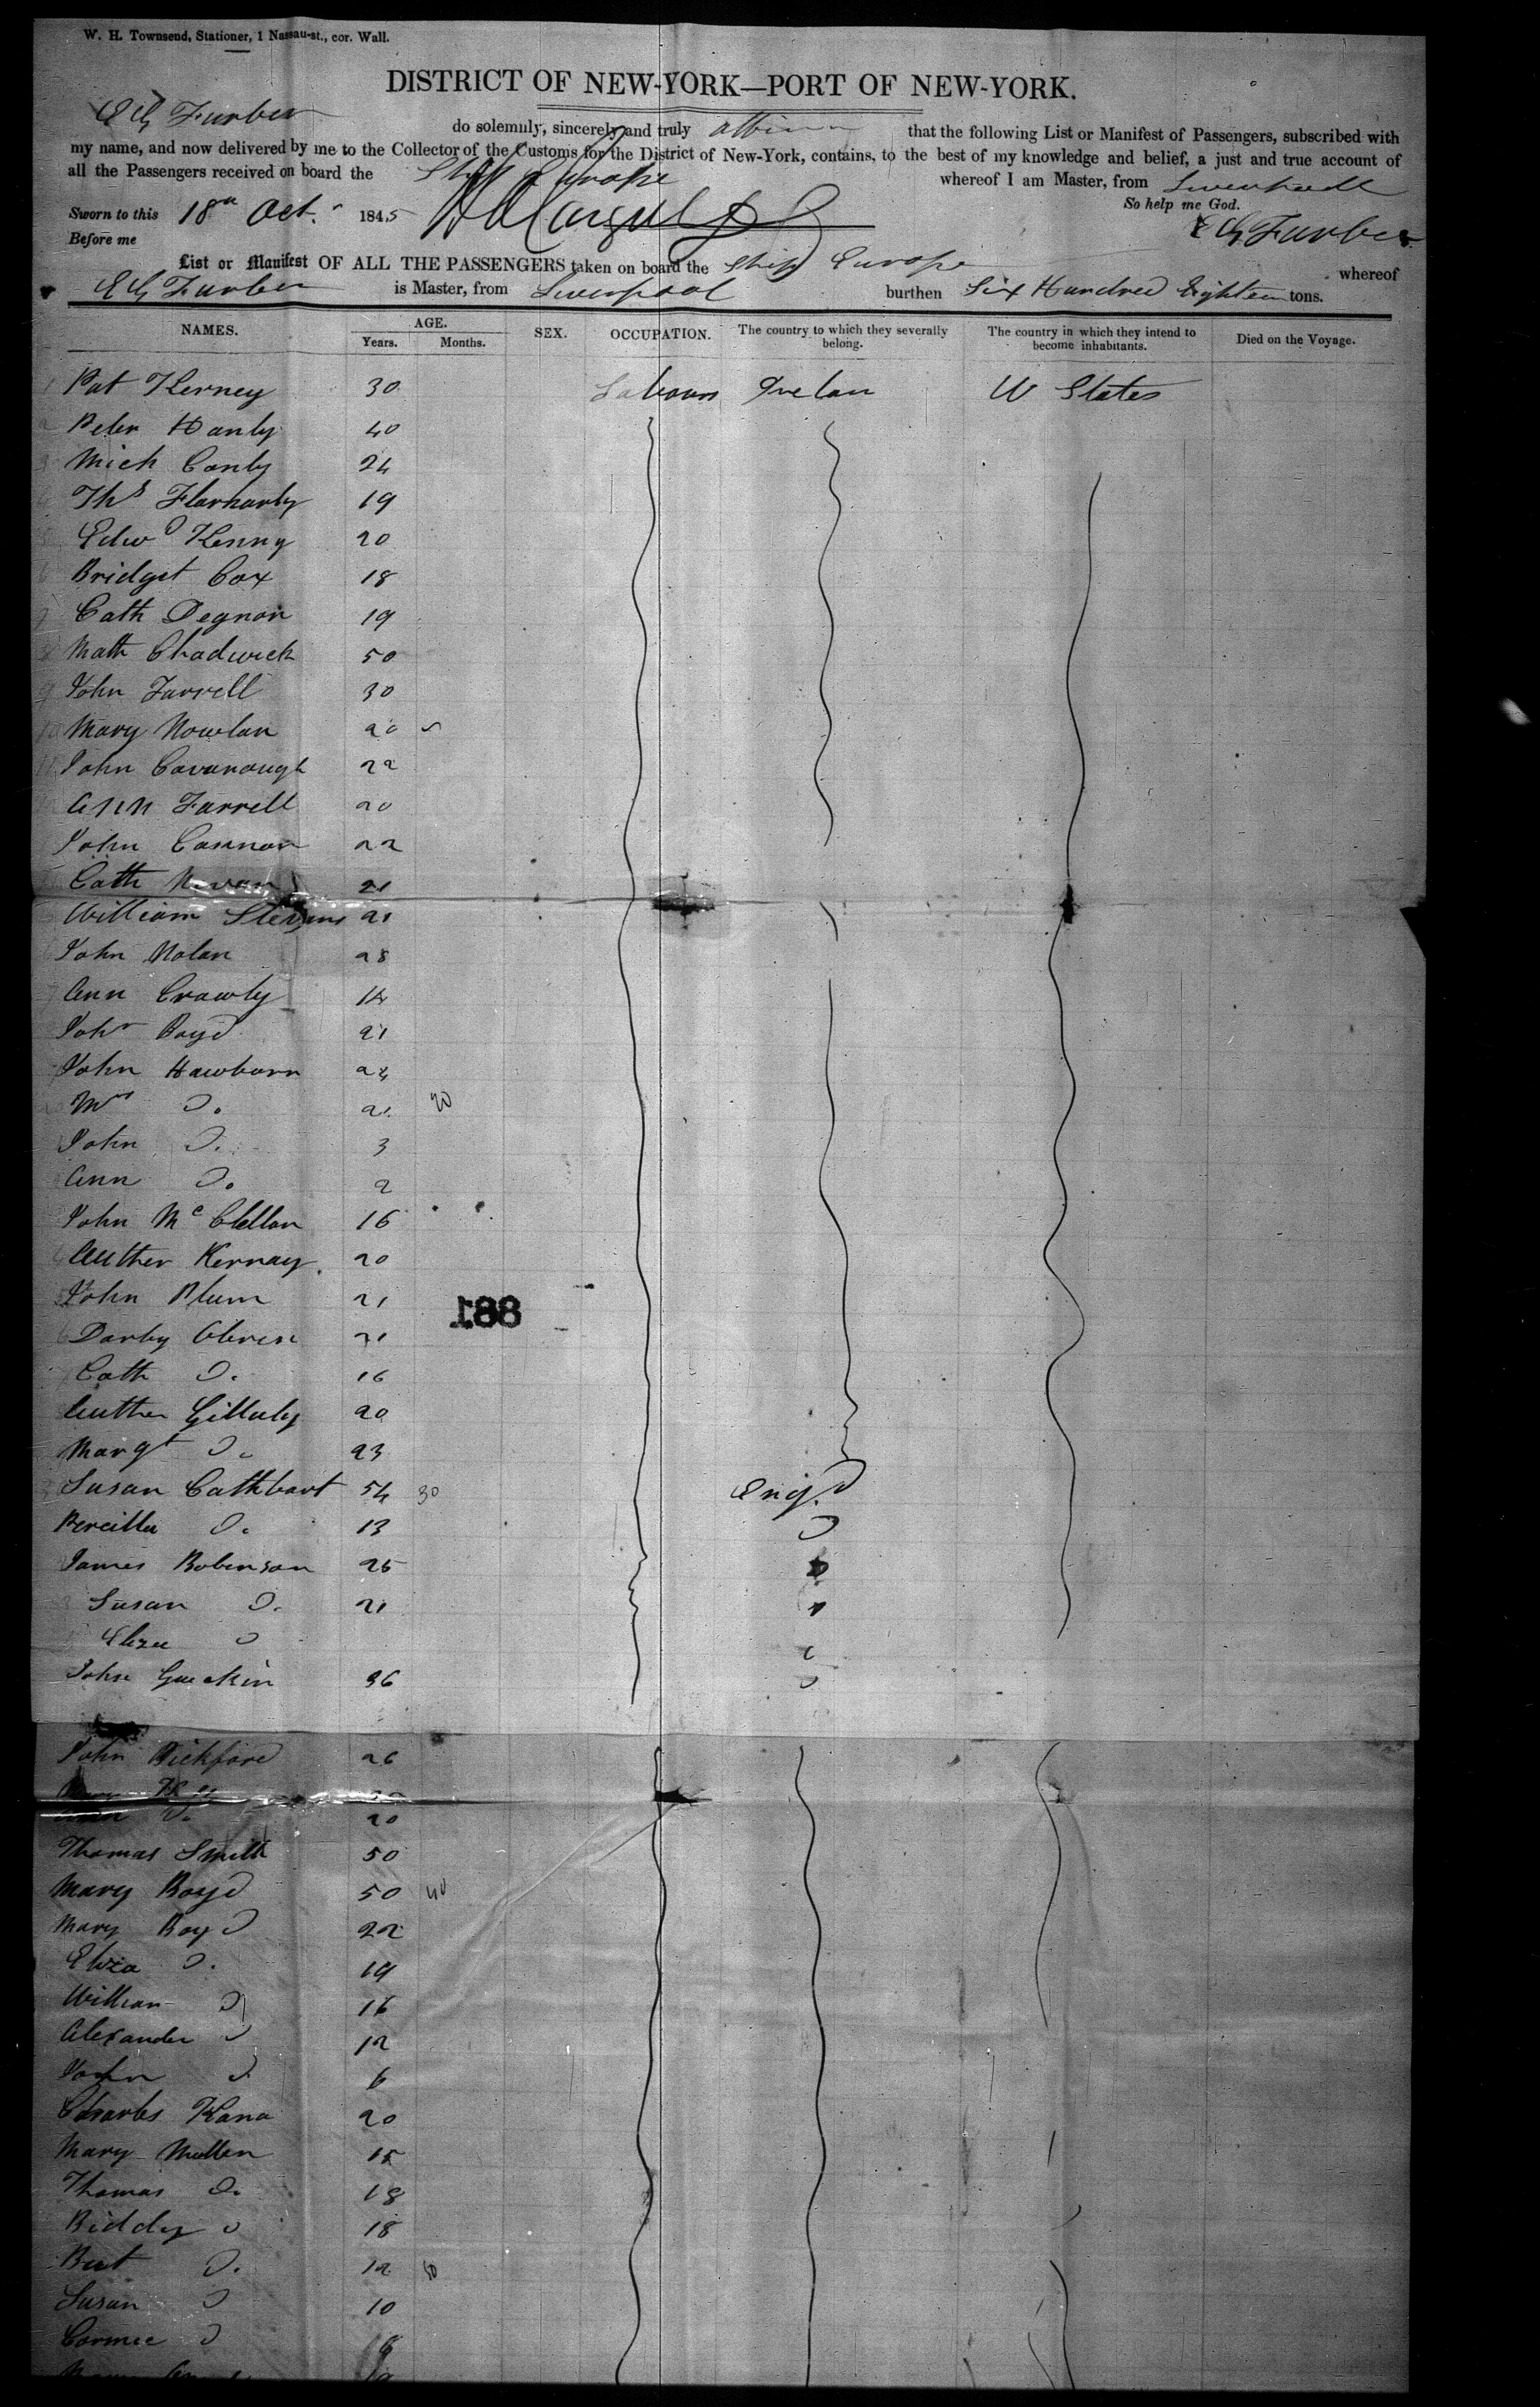 W. H. Townsend, Stationer, 1 Nassau-st., cor. Wall.
DISTRICT OF NEW-YORK—PORT OF NEW-YORK.
E G Furber do solemnly, sincerely and truly that the following List or Manifest of Passengers, subscribed with
my name, and now delivered by me to the Collector of the Customs for the District of New-York, contains, to the best of my knowledge and belief, a just and true account of
all the Passengers received on board the Ship Europe whereof I am Master, from Liverpool
So help me God.
Sworn to this 18th Oct. 1845
Before me
E G Furber
List or Manifest OF ALL THE PASSENGERS taken on board the Ship Europe whereof
E G Furber is Master, from Liverpool burthen Six Hundred Eighteen tons.
NAMES. AGE. Years. Months. SEX. OCCUPATION. The country to which they severally belong. The country in which they intend to become inhabitants. Died on the Voyage.
Pat Kerney 30 Labours Irelan U States
Peter Hanly 40
Mich Conly 24
Ths Flarharly 19
Edwd Kenny 20
Bridget Cox 18
Cath Degnan 19
Math Chadwick 50
John Farrell 30
Mary Nowlan 20
John Cavanaugh 22
Ann Farrell 20
John Connor 22
Cath 21
William Stevens 21
John Nolan 28
Ann Crawly 14
John Boyd 21
John Hawburn 24
Mrs Do. 21 20
John Do. 3
Ann Do. 2
John McClellan 16
Auther Kernay 20
John Plum 21
188
Darby Obrien 21
Cath Do. 16
Auther Gilluly 20
Margt Do. 23
Susan Cathbart 54 30 Engd
Percilla Do. 13 Do
James Robinson 25
Susan Do. 21
Eliza Do
John 36
John Bickford 26
Do. 20
Thomas Smith 50
Mary Boyd 50 40
Mary Boyd 22
Eliza Do. 19
William Do 16
Alexander Do 12
John Do 6
Charles Kana 20
Mary Mullen 15
Thomas Do. 18
Biddy Do 18
Do. 12 50
Susan Do 10
Cormic Do 8